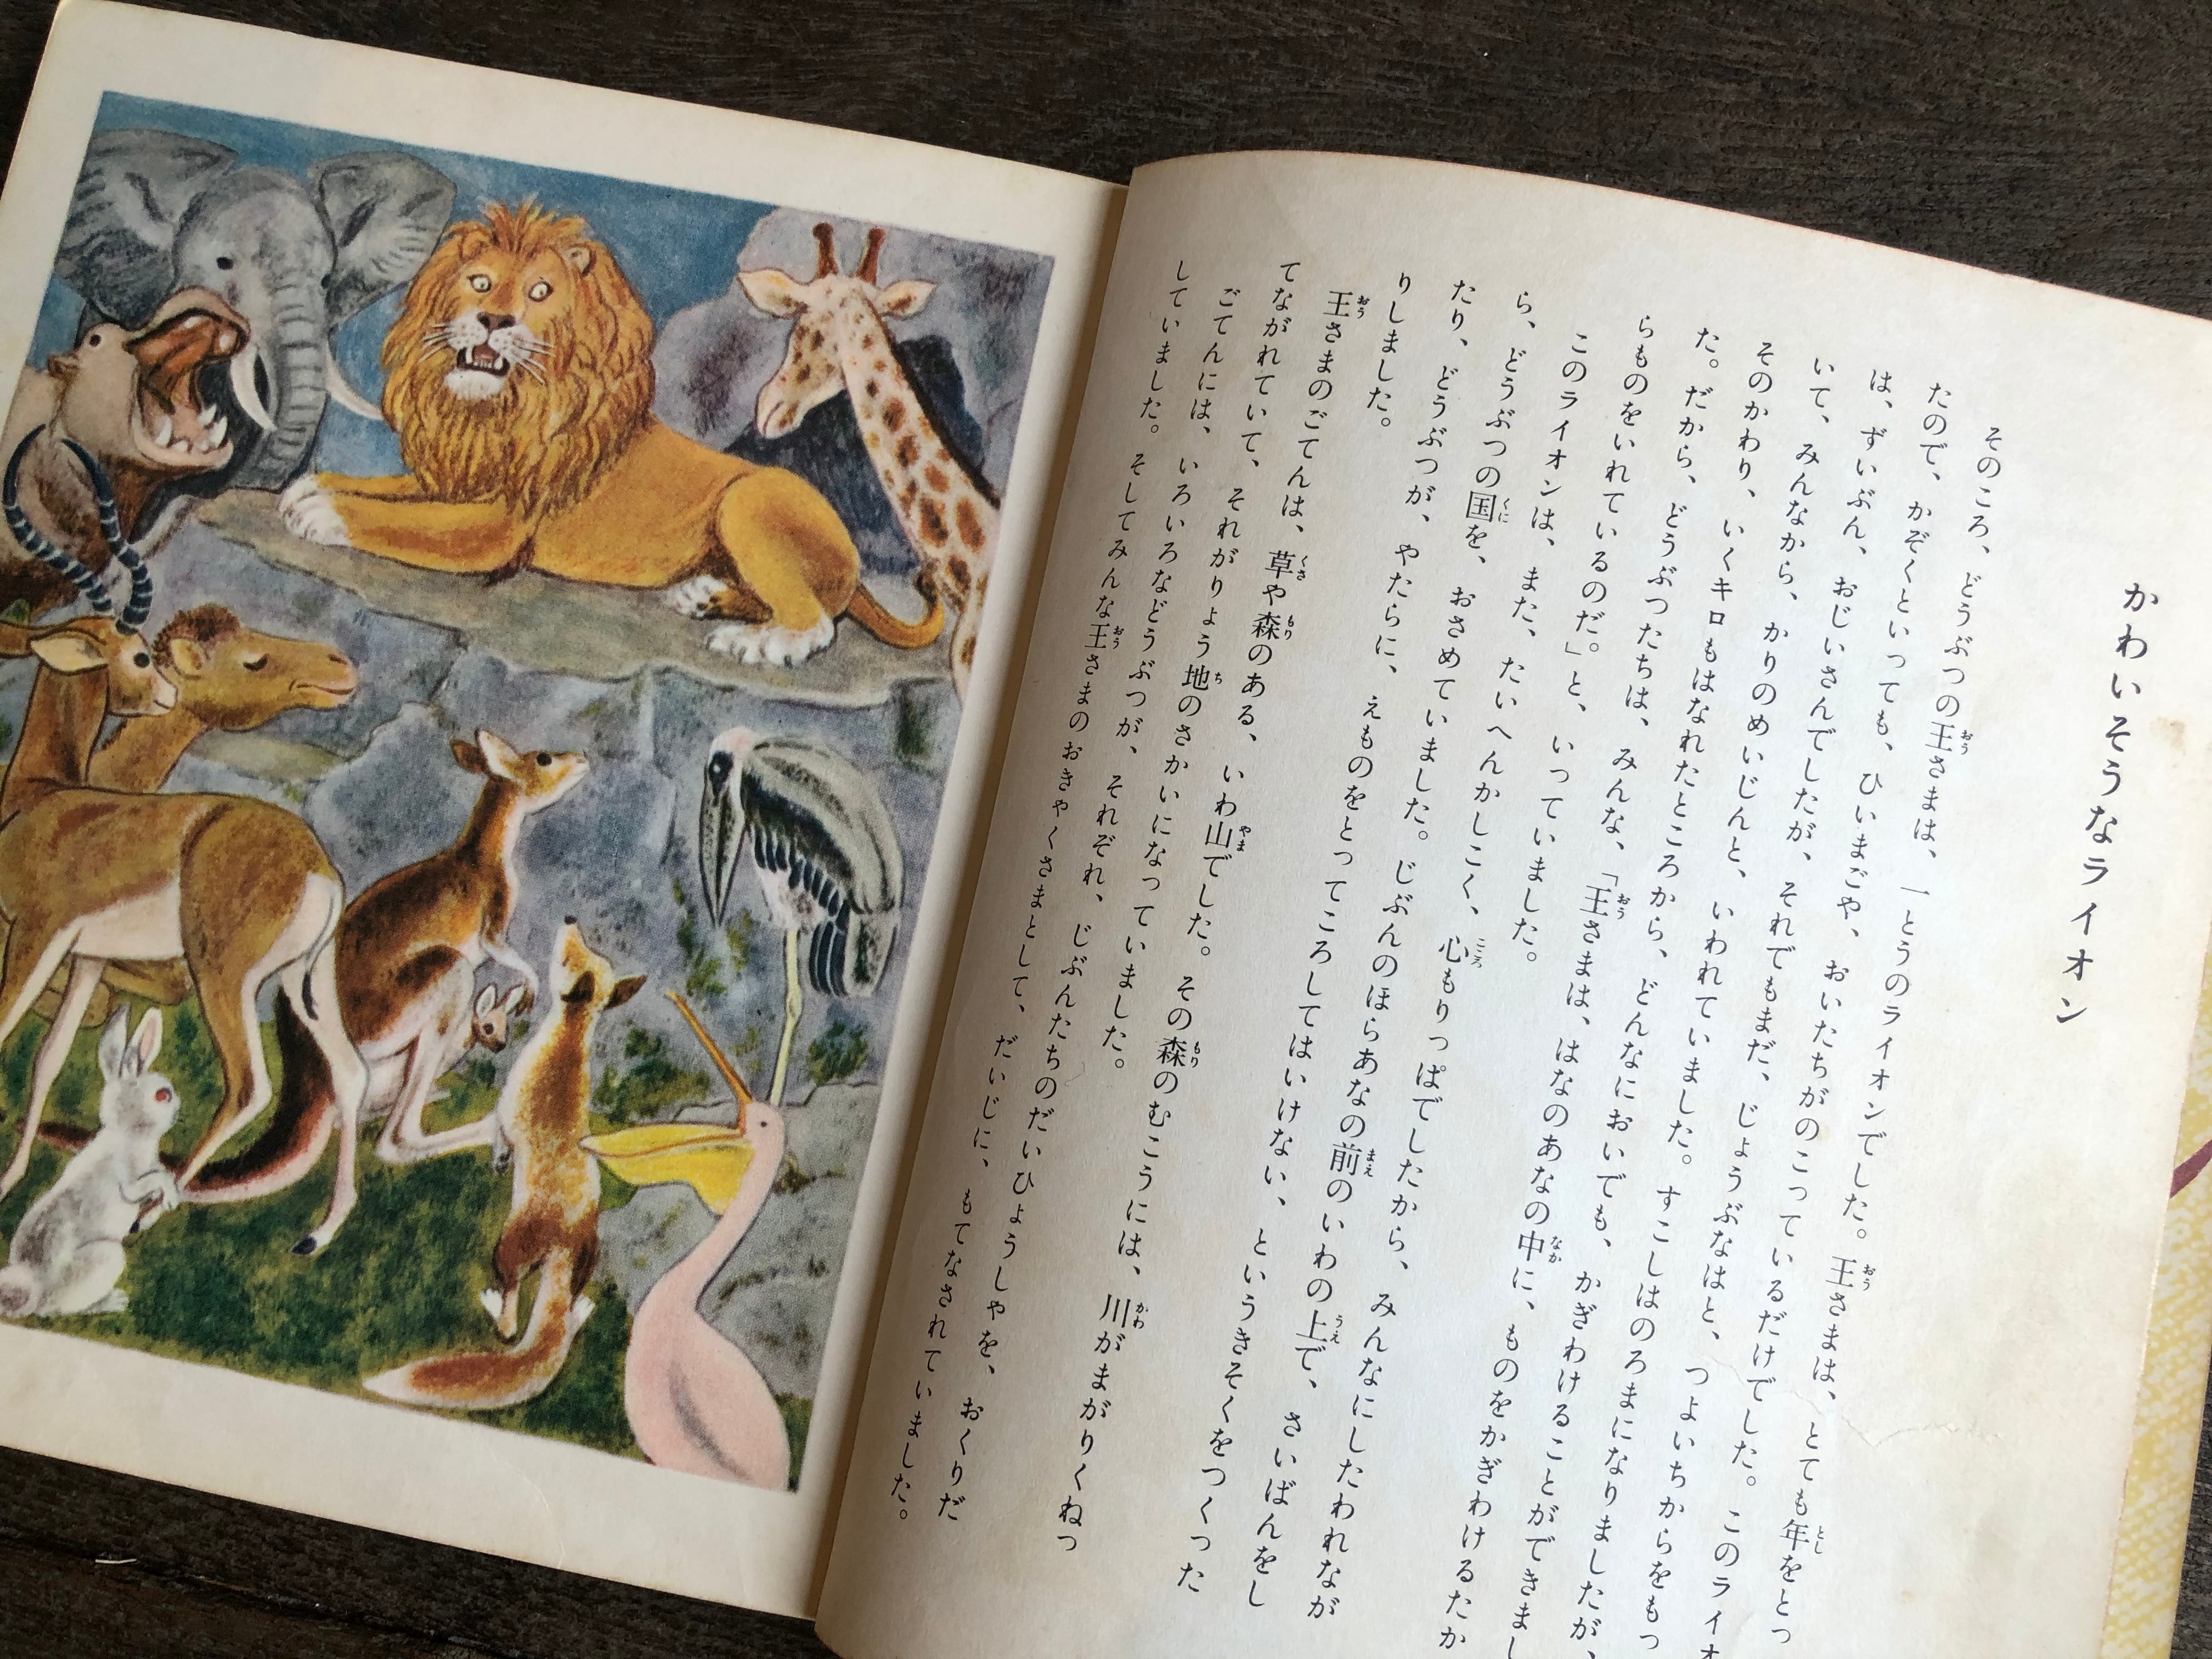 かわいそうなライオン
そのころ、どうぶつの王さまは、一とうのライオンでした。王さまは、とても年をとっ
たので、かぞくといっても、ひいまごや、おいたちがのこっているだけでした。このライオ
は、ずいぶん、おじいさんでしたが、それでもまだ、じょうぶなはと、つよいちからをもっ
いて、みんなから、かりのめいじんと、いわれていました。すこしはのろまになりましたが、
そのかわり、いくキロもはなれたところから、どんなにおいでも、かぎわけることができまし
た。だから、どうぶつたちは、みんな、「王さまは、はなのあなの中に、ものをかぎわけるたか
らものをいれているのだ。」と、いっていました。
このライオンは、また、たいへんかしこく、心もりっぱでしたから、みんなにしたわれなが
ら、どうぶつの国を、おさめていました。じぶんのほらあなの前のいわの上で、さいばんをし
たり、どうぶつが、やたらに、えものをとってころしてはいけない、というきそくをつくった
りしました。
王さまのごてんは、草や森のある、いわ山でした。その森のむこうには、川がまがりくねっ
てながれていて、それがりょう地のさかいになっていました。
ごてんには、いろいろなどうぶつが、それぞれ、じぶんたちのだいひょうしゃを、おくりだ
していました。そしてみんな王さまのおきゃくさまとして、だいじに、もてなされていました。